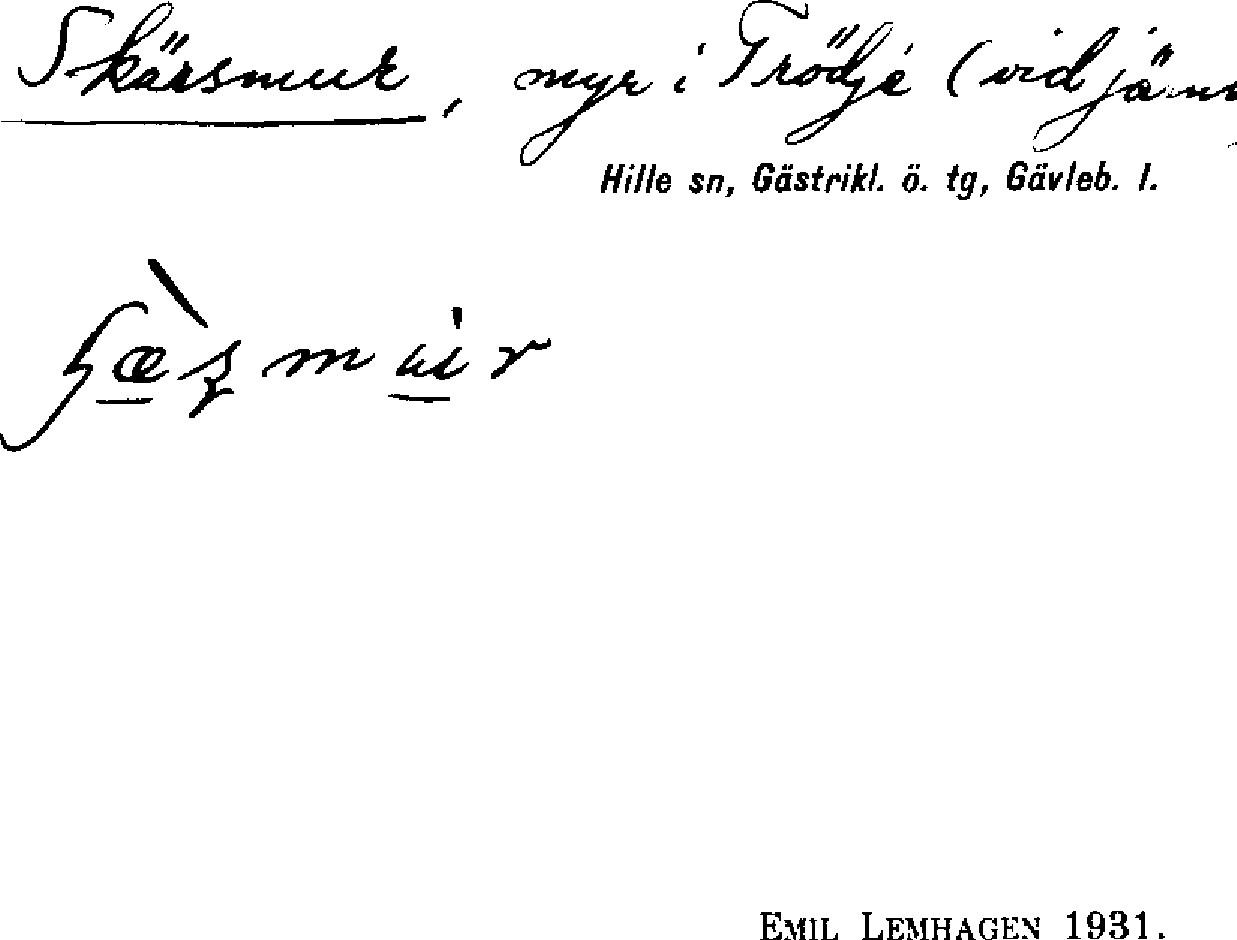 Skärsmur, myr i Trödje (vid
Hille sn, Gästrikl. ö. tg, Gävleb. l.
EMIL LEMHAGEN 1931.